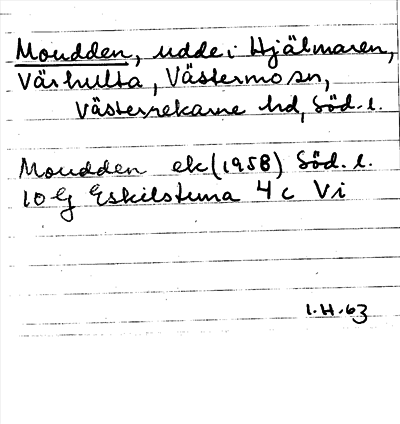 Moudden, udde i Hjälmaren,
Värhulta, Västermo sn,
Västerrekarne hd, Söd. l.
Moudden ek (1958) Söd. l.
10 G Eskilstuna 4 c Vi
1.H.63